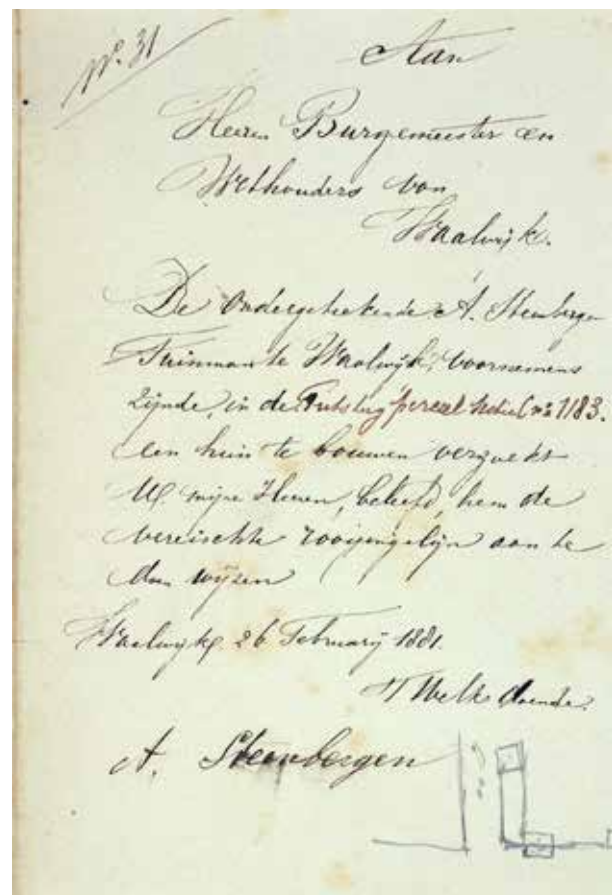 No. 31
Aan
Heeren Burgemeester en
Wethouders van
Waalwijk.
De ondergetekende A. Steenbergen
Tuinman te Waalwijk, voornemens
zijnde, in de perceel Sectie C no 1183.
een huis te bouwen verzoekt
U mijne Heeren, beleefd, hem de
vereischte rooijingslijn aan te
doen wijzen
Waalwijk 26 Februarij 1881.
'T Welk doende.
A. Steenbergen